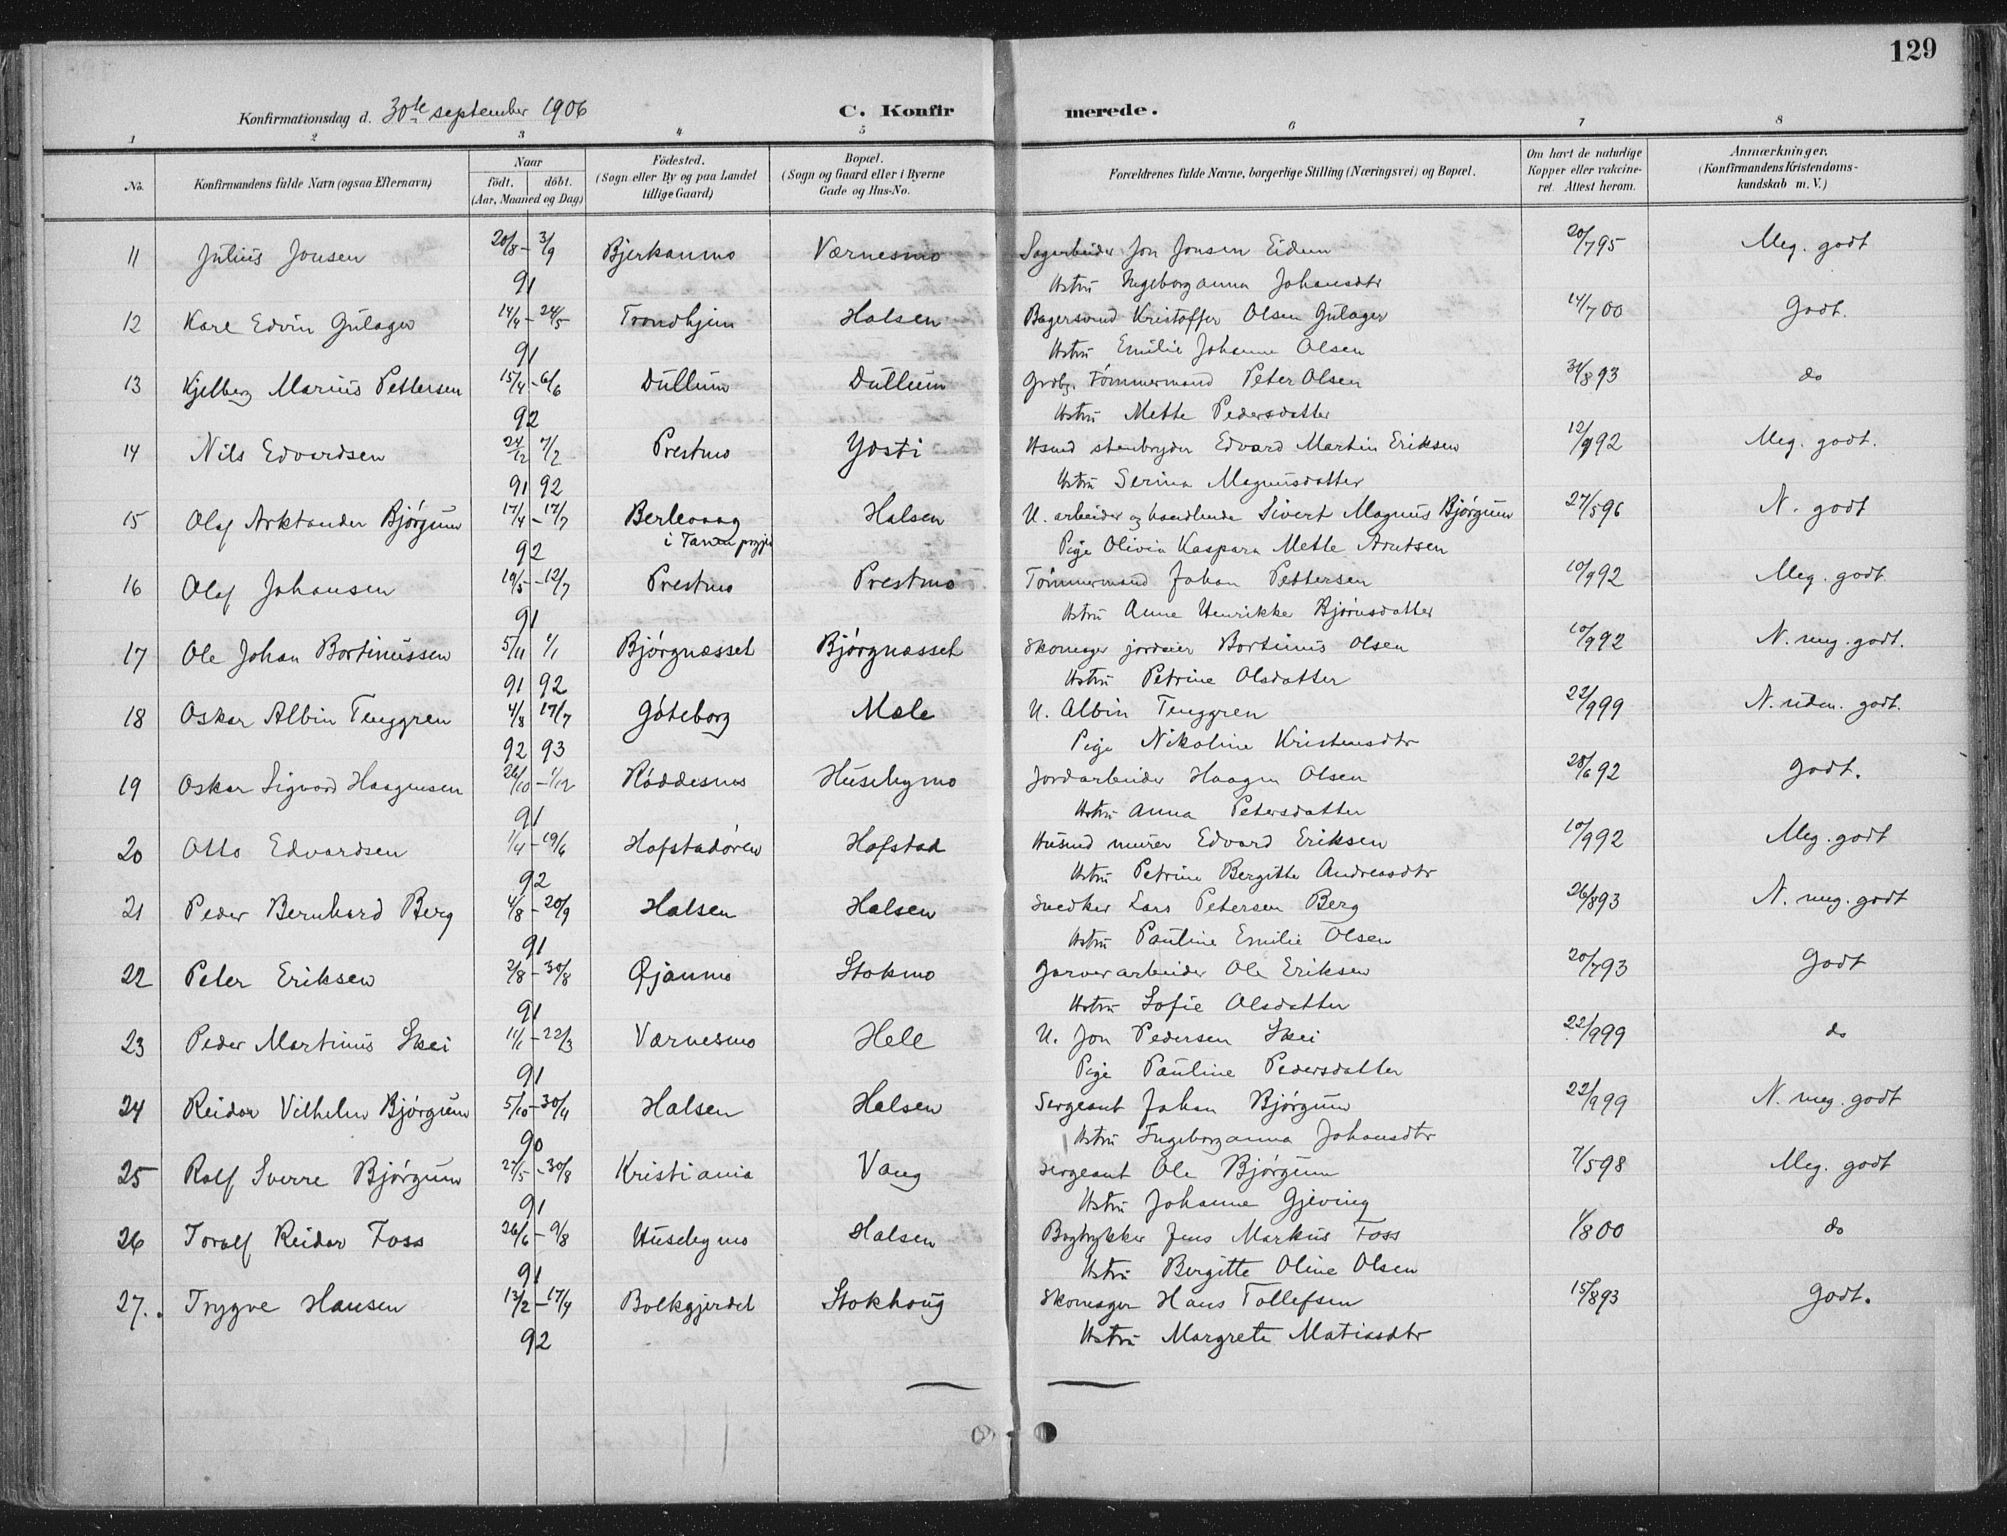 129
Konfirmationsdag d. 30te september 1906 C. Konfir merede.
1 2 3 4 5 6 7 8
No. Konfirmandens fulde Navn (ogsaa Efternavn) Naar födt. döbt. (Aar, Maaned og Dag) Födested. (Sogn eller By og paa Landet tillige Gaard) Bopæl. (Sogn og Gaard eller i Byerne Gade og Hus-No. Forældrenes fulde Navne, borgerlige Stilling (Næringsvei) og Bopæl. Om havt de naturlige Kopper eller vakcineret. Attest herom. Anmærkninger. (Konfirmandens Kristendomskundskab m. V.)
11 Julius Jonsen 20/8 - 3/9 Bjerkanmo Værnesmo Sagarbeider Jon Jonsen Eidum 20/795 Meg. godt
91 Hstru Ingeborganna Johansdtr
12 Kare Edvin Gulager 14/4 - 24/5 Trondhjem Halsen Bagersvend Kristoffer Olsen Gulager 14/700 Godt.
91 Hstru Emilie Johanne Olsen
13 Kjelberg Marius Pettersen 15/4 - 6/6 Dullum Dullum Grdbr. Tømmermand Peter Olsen 31/893 do
92 Hstru Mette Pedersdatter
14 Nils Edvardsen 24/12 7/2 Prestmo Ydsti Hsmd stenbryder Edvard Martin Eriksen 12/992 Meg. godt.
91 92 Hstru Serina Magnusdatter
15 Olaf Arktander Bjórgum 17/4 - 17/7 Berlevaag Halsen U. arbeider og handlende Sivert Magnus Bjórgum 27/596 N. godt
92 i Tanen prgjld Pige Olivia Kaspara Mette Arntsen
16 Olaf Johansen 19/5 - 12/7 Prestmo Prestmo Tømmermand Johan Pettersen 10/992 Meg. godt
91 Hstru Anne Henrikke Bjørnsdatter
17 Ole Johan Bortinussen 5/11 1/1 Bjórgnæsset Bjórgnæsset Skomager jordeier Bortinus Olsen 10/992 N. meg. godt.
91 92 Hstru Petrine Olsdatter
18 Oskar Albin Tenggren 4/8 17/7 Góteborg Mæle U. Albin Tenggren 22/999 N. uden. godt.
92 93 Pige Nikoline Kristensdtr
19 Oskar Sigvard Haagensen 26/10 - 1/12 Róddesnes Husebymo Jordarbeider Haagen Olsen 28/692 Godt.
91 Hstru Anna Petersdatter
20 Otto Edvardsen 1/4 - 19/6 Hofstadóren Hofstad Husmd murer Edvard Eriksen 10/992 Meg. godt
92 Hstru Petrine Bergitte Andreasdtr
21 Peder Bernhard Berg 4/8 - 20/9 Halsen Halsen Snedker Lars Petersen Berg 26/893 N. meg. godt
91 Hstru Pauline Emilie Olsen
22 Peter Eriksen 2/8 - 30/8 Øjanmo Stokmo Garverarbeider Ole Eriksen 20/793 Godt
91 Hstru Sofie Olsdatter
23 Peder Martinus Skei 11/1 - 22/3 Værnesmo Hell U. Jon Pedersen Skei 22/999 do
91 Pige Pauline Pedersdatter
24 Reidar Vilhelm Bjórgum 5/10 - 30/4 Halsen Halsen Sergeant Johan Bjórgum 22/999 N. meg. godt
90 Hstru Ingeborganna Johansdtr
25 Rolf Sverre Bjórgum 27/5 - 30/8 Kristiania Vang Sergeant Ole Bjórgum 7/598 Meg. godt
91 Hstru Johanne Gjeving
26 Toralf Reidar Foss 26/6 - 9/8 Husebymo Halsen Bogtrykker Jens Markus Foss 1/800 do
91 Hstru Bergitte Oline Olsen
27. Trygve Hansen 13/2 - 17/4 Bolkgjerdet Stokhaug Skomager Hans Tollefsen 15/893 Godt.
92 Hstru Margrete Matiasdtr